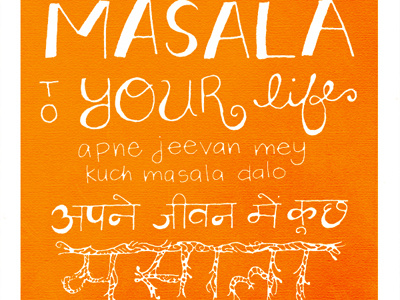 MASALA
TO YOUR life
apne jeevan mey
kuch masala dalo
अपने जीवन में कुछ
मसाला